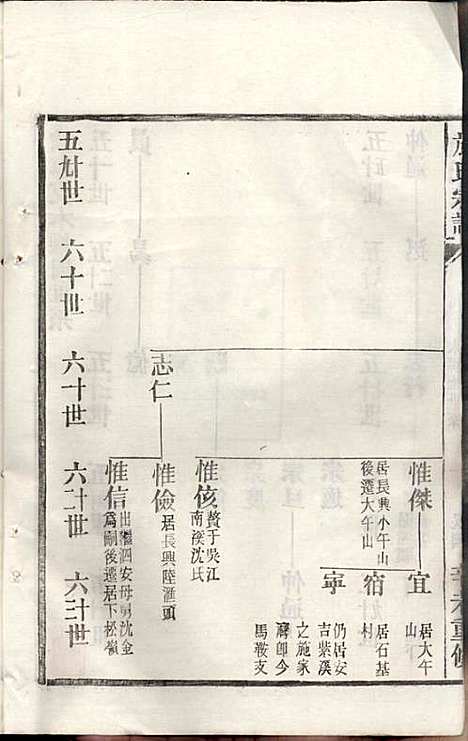 氏宗譜
惟傑
居長興小午山
後遷大午山
宜
居大午
山
宿
居石基
村
寧
仍居安
吉紫溪
之施家
灣即今
馬鞍支
惟侅
贅于吳江
南潯沈氏
志仁
惟儉
居長興陸滙頭
惟信
出繼泗安母舅沈金
爲嗣後遷居下松嶺
五卅世
六十世
六十世
六二十世
六三十世